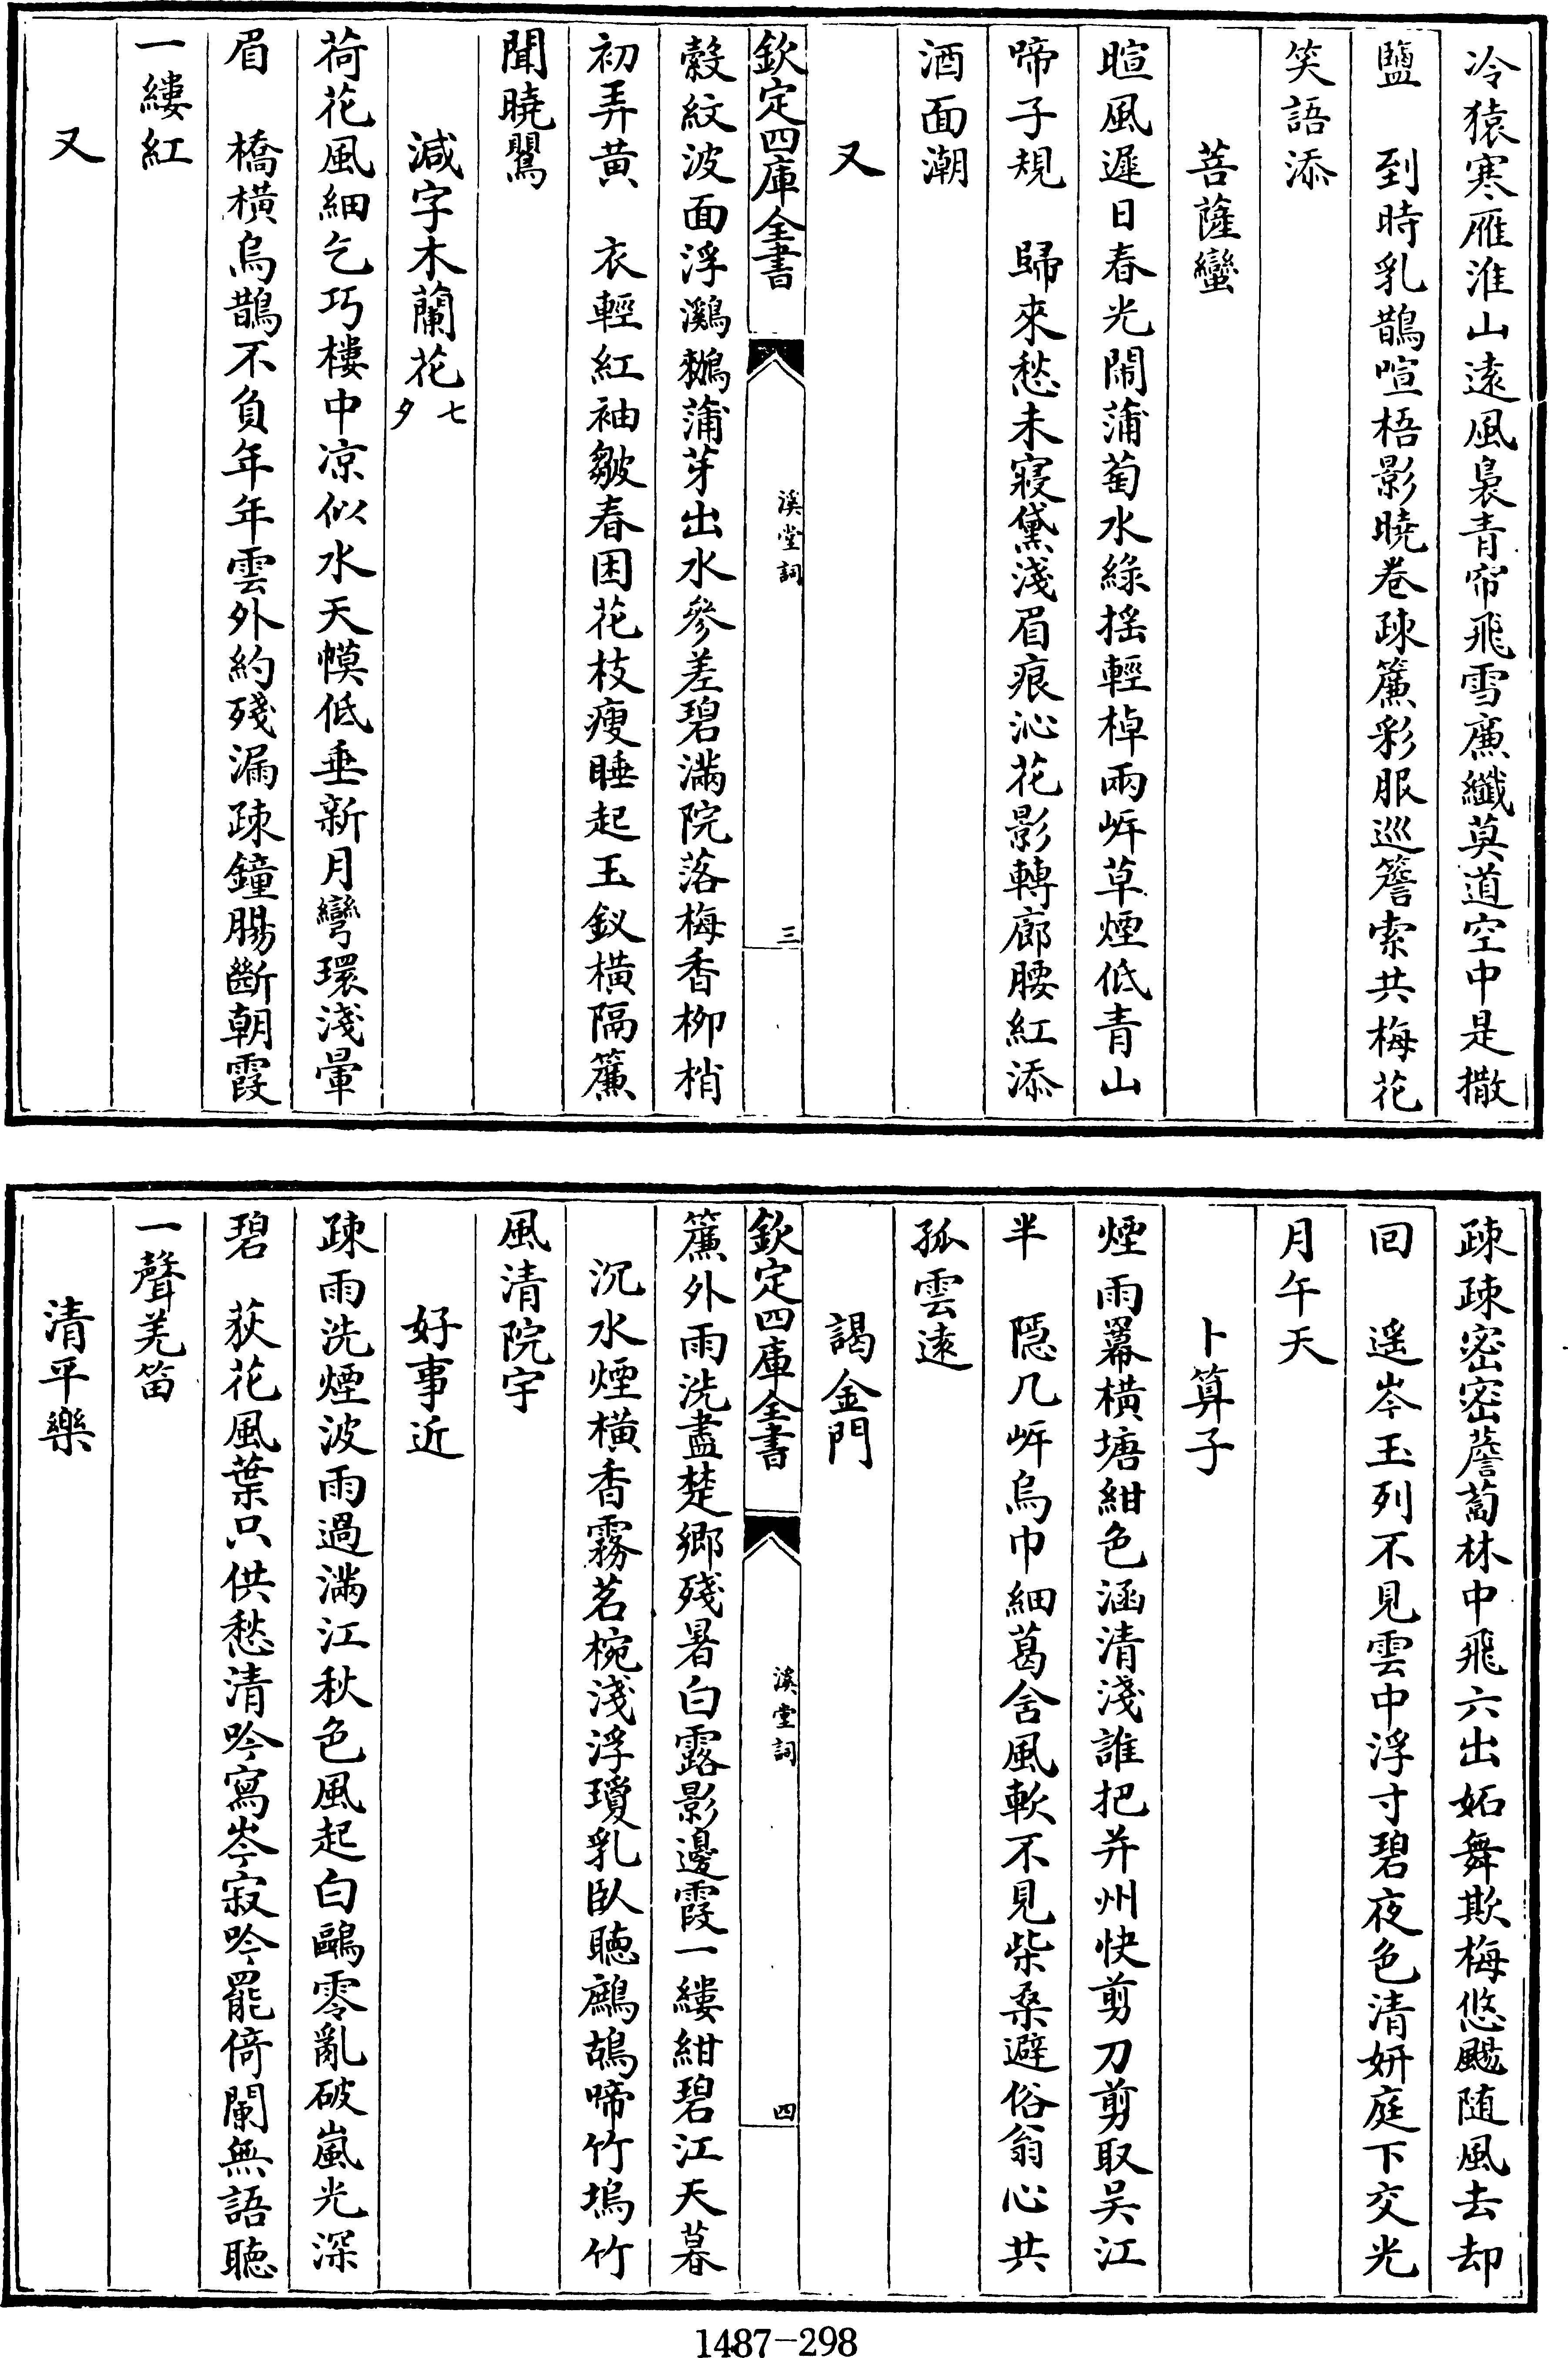 冷猿寒雁淮山遠風裊青帘飛雪廉纖莫道空中是撒
鹽　到時乳鵲喧梧影曉卷疎簾彩服巡簷索共梅花
笑語添
菩薩蠻
暄風遲日春光鬧蒲萄水綠揺輕棹兩岍草煙低青山
啼子規　歸來愁未寢黛淺眉痕沁花影轉廊腰紅添
酒面潮
又
欽定四庫全書
溪堂詞
三
縠紋波面浮鸂鶒蒲芽出水參差碧滿院落梅香柳梢
初弄黄　衣輕紅袖皺春困花枝瘦睡起玉釵横隔簾
聞曉鸎
減字木蘭花七夕
荷花風細乞巧樓中凉似水天幙低垂新月彎環淺暈
眉　橋横烏鵲不負年年雲外約殘漏疎鐘腸斷朝霞
一縷紅
又
疎疎密密薝蔔林中飛六出妬舞欺梅悠颺随風去却
回　遥岑玉列不見雲中浮寸碧夜色清妍庭下交光
月午天
卜算子
煙雨羃橫塘紺色涵清淺誰把并州快剪刀剪取吴江
半　隠几岍烏巾細葛含風軟不見柴桑避俗翁心共
孤雲遠
謁金門
欽定四庫全書
溪堂詞
四
簾外雨洗盡楚鄉殘暑白露影邊霞一縷紺碧江天暮
沉水煙横香霧茗椀淺浮瓊乳臥聴鷓鴣啼竹塢竹
風清院宇
好事近
疎雨洗煙波雨過滿江秋色風起白鷗零亂破嵐光深
碧　荻花風葉只供愁清吟寫岑寂吟罷倚闌無語聴
一聲羌笛
清平樂
1487-298